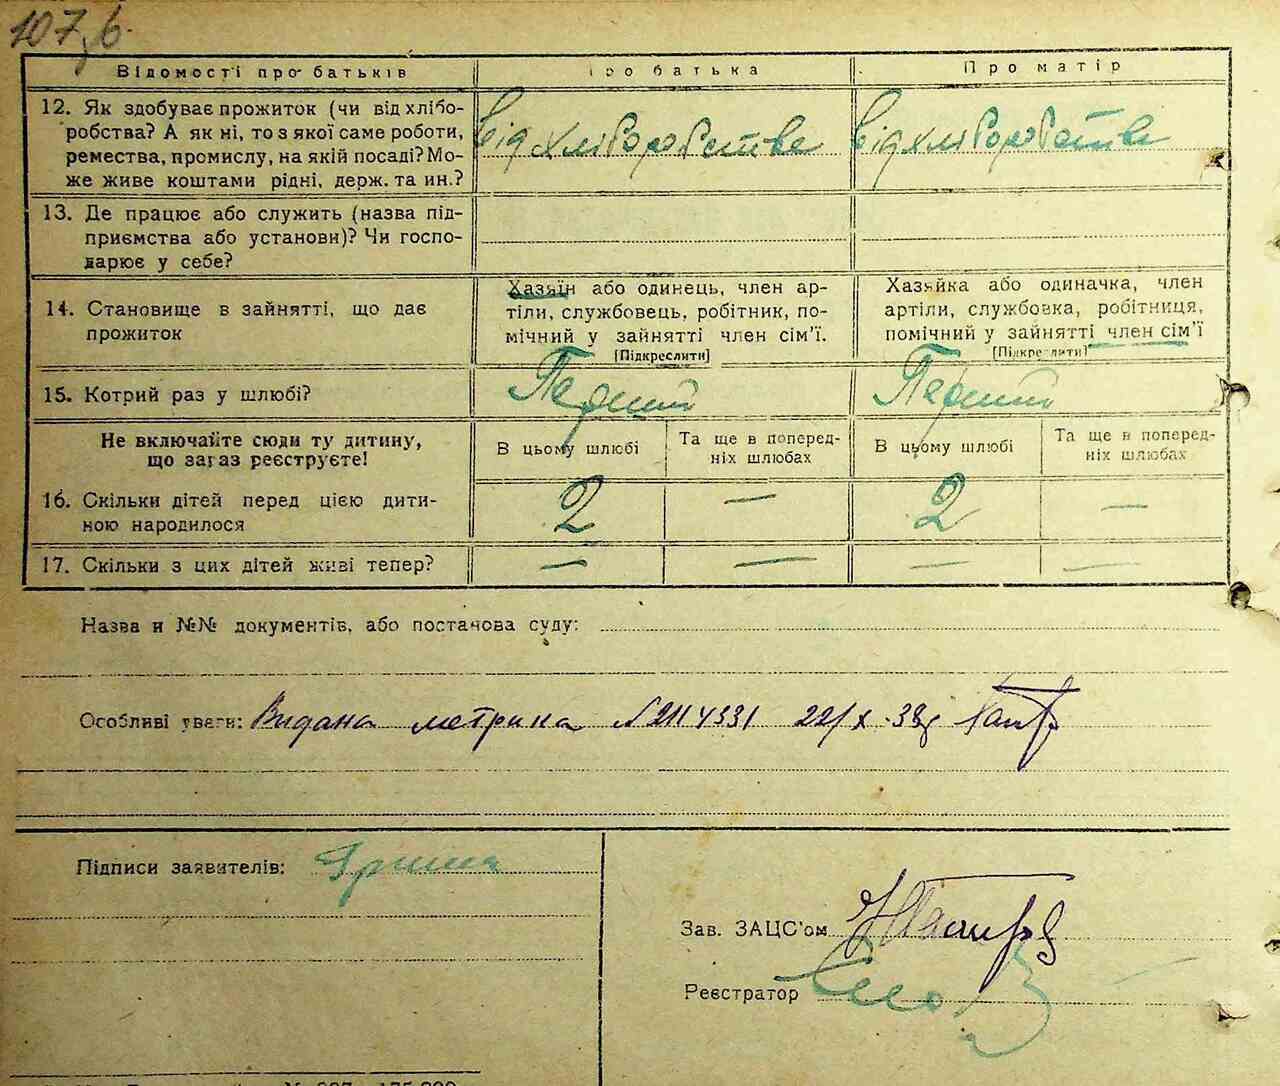 107,б.
Відомості про батьків
Про батька
Про матір
12. Як здобуває прожиток (чи від хлібо-
робства? А як ні, то з якої саме роботи,
ремества, промислу, на якій посаді? Мо-
же живе коштами рідні, держ. та ин.?
від хліборобства
від хліборобства
13. Де працює або служить (назва під-
приємства або установи)? Чи госпо-
дарює у себе?
14. Становище в зайнятті, що дає
прожиток
Хазяїн або одинець, член ар-
тіли, службовець, робітник, по-
мічний у зайнятті член сім'ї.
[Підкреслити]
Хазяйка або одиначка, член
артіли, службовка, робітниця,
помічний у зайнятті член сім'ї
[Підкреслити]
15. Котрий раз у шлюбі?
Перший
Перший
Не включайте сюди ту дитину,
що зараз реєструєте!
В цьому шлюбі
Та ще в поперед-
ніх шлюбах
В цьому шлюбі
Та ще в поперед-
ніх шлюбах
16. Скільки дітей перед цією дити-
ною народилося
2 — 2 —
17. Скільки з цих дітей живі тепер?
— — — —
Назва и №№ документів, або постанова суду:
Особливі уваги: Видана метрика 22/X
Підписи заявителів:
Зав. ЗАЦС'ом
Реєстратор